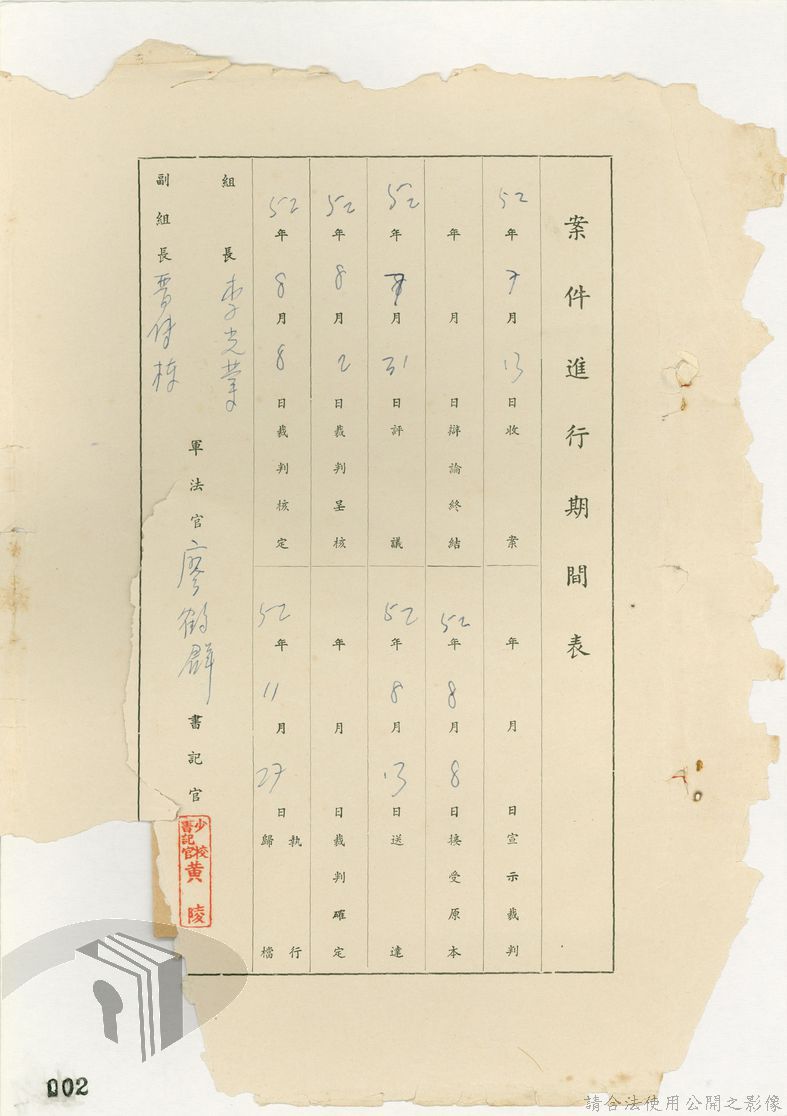 案件進行期間表
52年7月13日收案
年月日宣示裁判
年月日辯論終結
52年8月8日接受原本
52年7月31日評議
52年8月13日送達
52年8月2日裁判呈核
年月日裁判確定
52年8月8日裁判核定
52年11月27日執行歸檔
組長 李光業
副組長 賈
軍法官 廖鶴群
書記官
少校書記官黃陵
002
請合法使用公開之影像